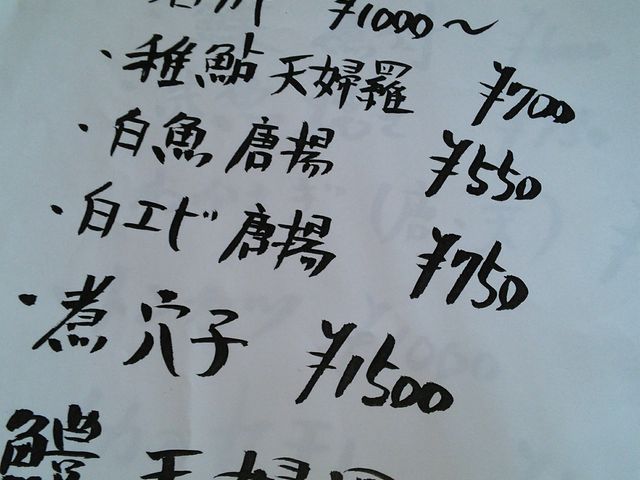 ¥1000〜
・稚鮎天婦羅 ¥700
・白魚唐揚 ¥550
・白エビ唐揚 ¥750
・煮穴子 ¥1500
天婦羅